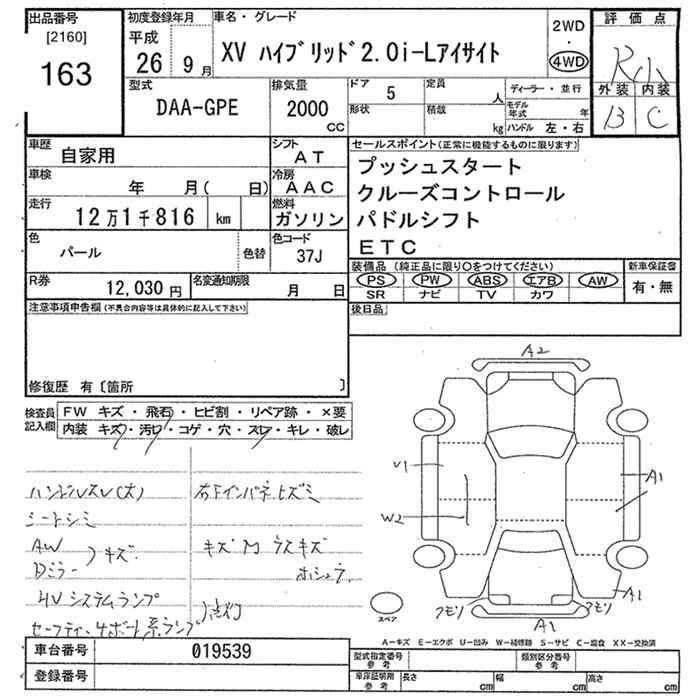 出品番号
[2160]
163
初度登録年月
平成
26 9月
車名・グレード
XV ハイブリッド2.0i-Lアイサイト
2WD
・
4WD
評価点
R小
外装 内装
B C
型式
DAA-GPE
排気量
2000
cc
ドア 5
定員 人
形状
積載 kg
ディーラー・並行
モデル年式 年
ハンドル 左・右
車歴 自家用
シフト AT
車検 年 月( 日)
冷房 AAC
走行 12万1千816 km
燃料 ガソリン
色 パール 色替
色コード 37J
R券 12,030 円
名変通知期限 月 日
セールスポイント(正常に機能するものに限ります)
プッシュスタート
クルーズコントロール
パドルシフト
ETC
装備品(純正品に限り○をつけてください)
PS PW ABS エアB AW
SR ナビ TV カワ
新車保証書
有・無
後日品
注意事項申告欄(不具合内容等は具体的に記入して下さい)
修復歴 有〔箇所 〕
検査員記入欄
FW キズ・飛石・ヒビ割・リペア跡・×要
内装 キズ・汚レ・コゲ・穴・スレ・キレ・破レ
ハンドルスレ(大)
シートシミ
AW
Dミラー
キズ
HVシステムランプ
セーフティーサポート系ランプ
点灯
右下インパネヒズミ
キズM ラスキズ
ホシュウ
A2
U1
W2
A1
A1
アモリ
アモリ
A1
スペア
A-キズ E-エクボ U-凹み W-補修跡 S-サビ C-腐食 XX-交換済
車台番号 019539
登録番号
型式指定番号
参考
類別区分番号
参考
車庫証明用
参考
長さ cm
幅 cm
高さ cm